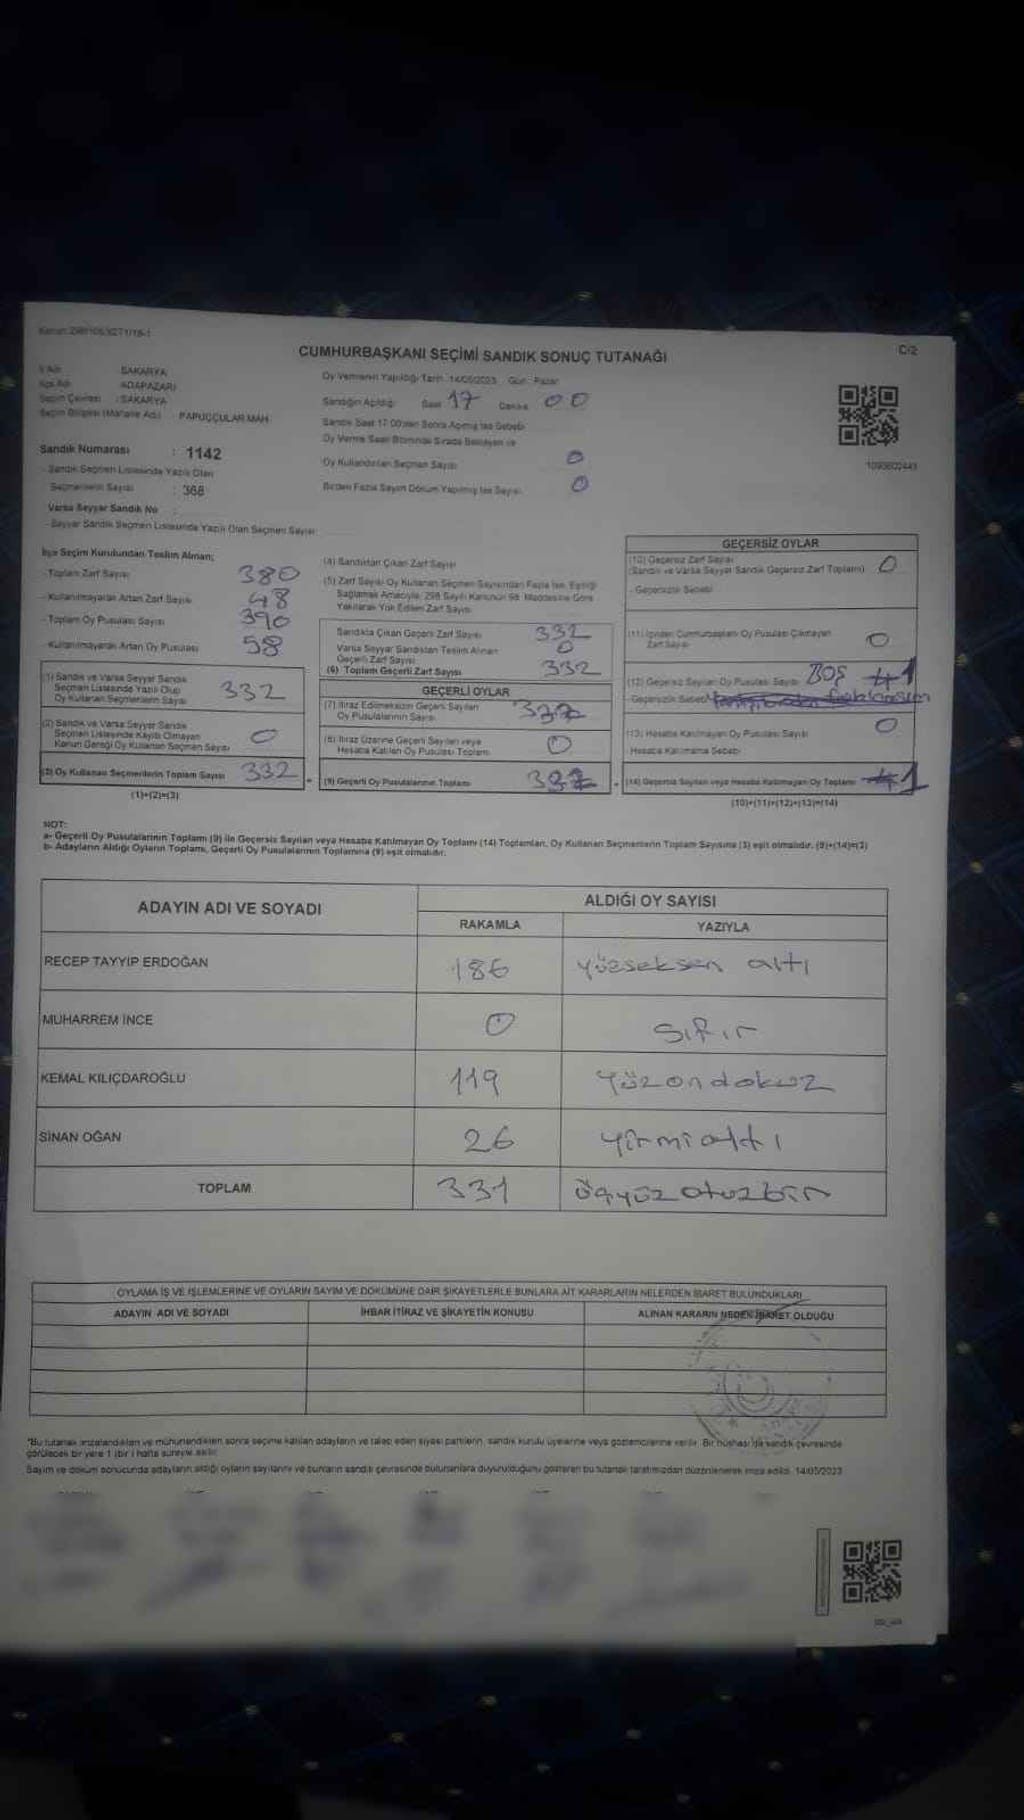 CUMHURBAŞKANI SEÇİMİ SANDIK SONUÇ TUTANAĞI
C/2
İl Adı SAKARYA
İlçe Adı ADAPAZARI
Seçim Çevresi : SAKARYA
Seçim Bölgesi (Mahalle Adı) : PAPUÇÇULAR MAH.
Oy Vermenin Yapıldığı Tarih 14/05/2023 Gün Pazar
Sandığın Açıldığı Saat 17 Dakika 00
Sandık Saat 17.00'den Sonra Açılmış İse Sebebi
Oy Verme Saati Bitiminde Sırada Bekleyen ve
Oy Kullandırılan Seçmen Sayısı 0
Birden Fazla Sayım Döküm Yapılmış İse Sayısı 0
Sandık Numarası : 1142
Sandık Seçmen Listesinde Yazılı Olan
Seçmenlerin Sayısı : 368
Varsa Seyyar Sandık No
- Seyyar Sandık Seçmen Listesinde Yazılı Olan Seçmen Sayısı
İlçe Seçim Kurulundan Teslim Alınan;
- Toplam Zarf Sayısı 380
- Kullanılmayarak Artan Zarf Sayısı 48
- Toplam Oy Pusulası Sayısı 390
- Kullanılmayarak Artan Oy Pusulası 58
(1) Sandık ve Varsa Seyyar Sandık
Seçmen Listesinde Yazılı Olup
Oy Kullanan Seçmenlerin Sayısı 332
(2) Sandık ve Varsa Seyyar Sandık
Seçmen Listesinde Kayıtlı Olmayan
Kanun Gereği Oy Kullanan Seçmen Sayısı 0
(3) Oy Kullanan Seçmenlerin Toplam Sayısı 332
(1)+(2)=(3)
(4) Sandıktan Çıkan Zarf Sayısı
(5) Zarf Sayısı Oy Kullanan Seçmen Sayısından Fazla İse, Eşitliği
Sağlamak Amacıyla; 298 Sayılı Kanunun 98. Maddesine Göre
Yakılarak Yok Edilen Zarf Sayısı
Sandıkta Çıkan Geçerli Zarf Sayısı 332
Varsa Seyyar Sandıktan Teslim Alınan
Geçerli Zarf Sayısı 0
(6) Toplam Geçerli Zarf Sayısı 332
GEÇERLİ OYLAR
(7) İtiraz Edilmeksizin Geçerli Sayılan
Oy Pusulalarının Sayısı
(8) İtiraz Üzerine Geçerli Sayılan veya
Hesaba Katılan Oy Pusulası Toplamı 0
(9) Geçerli Oy Pusulalarının Toplamı
GEÇERSİZ OYLAR
(10) Geçersiz Zarf Sayısı
(Sandık ve Varsa Seyyar Sandık Geçersiz Zarf Toplamı) 0
- Geçersizlik Sebebi
(11) İçinden Cumhurbaşkanı Oy Pusulası Çıkmayan
Zarf Sayısı 0
(12) Geçersiz Sayılan Oy Pusulası Sayısı BOŞ 1
Geçersizlik Sebebi
(13) Hesaba Katılmayan Oy Pusulası Sayısı 0
Hesaba Katılmama Sebebi
(14) Geçersiz Sayılan veya Hesaba Katılmayan Oy Toplamı 1
(10)+(11)+(12)+(13)=(14)
NOT:
a- Geçerli Oy Pusulalarının Toplamı (9) ile Geçersiz Sayılan veya Hesaba Katılmayan Oy Toplamı (14) Toplamları, Oy Kullanan Seçmenlerin Toplam Sayısına (3) eşit olmalıdır. (9)+(14)=(3)
b- Adayların Aldığı Oyların Toplamı, Geçerli Oy Pusulalarının Toplamına (9) eşit olmalıdır.
ADAYIN ADI VE SOYADI
ALDIĞI OY SAYISI
RAKAMLA YAZIYLA
RECEP TAYYİP ERDOĞAN 186 yüzseksen altı
MUHARREM İNCE 0 sıfır
KEMAL KILIÇDAROĞLU 119 yüzondokuz
SİNAN OĞAN 26 yirmialtı
TOPLAM 331 üçyüzotuzbir
OYLAMA İŞ VE İŞLEMLERİNE VE OYLARIN SAYIM VE DÖKÜMÜNE DAİR ŞİKAYETLERLE BUNLARA AİT KARARLARIN NELERDEN İBARET BULUNDUKLARI
ADAYIN ADI VE SOYADI
İHBAR İTİRAZ VE ŞİKAYETİN KONUSU
ALINAN KARARIN NEDEN İBARET OLDUĞU
*Bu tutanak imzalandıktan ve mühürlendikten sonra seçime katılan adayların ve talep eden siyasi partilerin, sandık kurulu üyelerine veya gözlemcilerine verilir. Bir nüshası da sandık çevresinde
görülecek bir yere 1 (bir) hafta süreyle asılır.
Sayım ve döküm sonucunda adayların aldığı oyların sayılarını ve bunların sandık çevresinde bulunanlara duyurulduğunu gösteren bu tutanak tarafımızdan düzenlenerek imza edildi. 14/05/2023